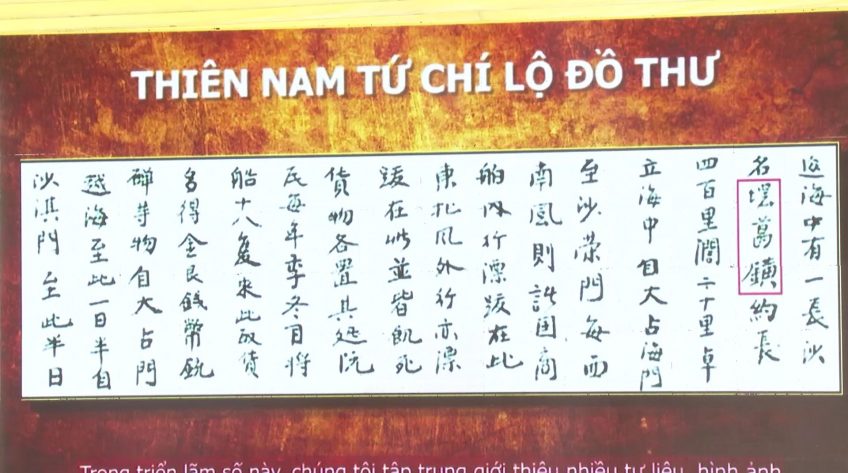 THIÊN NAM TỨ CHÍ LỘ ĐỒ THƯ
海中有一長沙
名𡓁葛鐄約長
四百里濶二十里卓
立海中自大占海門
至沙榮門每西
南風則諸国商
舶内行漂跋在此
東北風外行亦漂
跋在此並皆飢死
貨物各置其処阮
氏每年季冬月將
船十八隻來此取貨
多得金艮錢幣銃
彈等物自大占門
越海至此一日半自
沙淇門至此半日
Trong triển lãm số này, chúng tôi tập trung giới thiệu nhiều tư liệu, hình ảnh